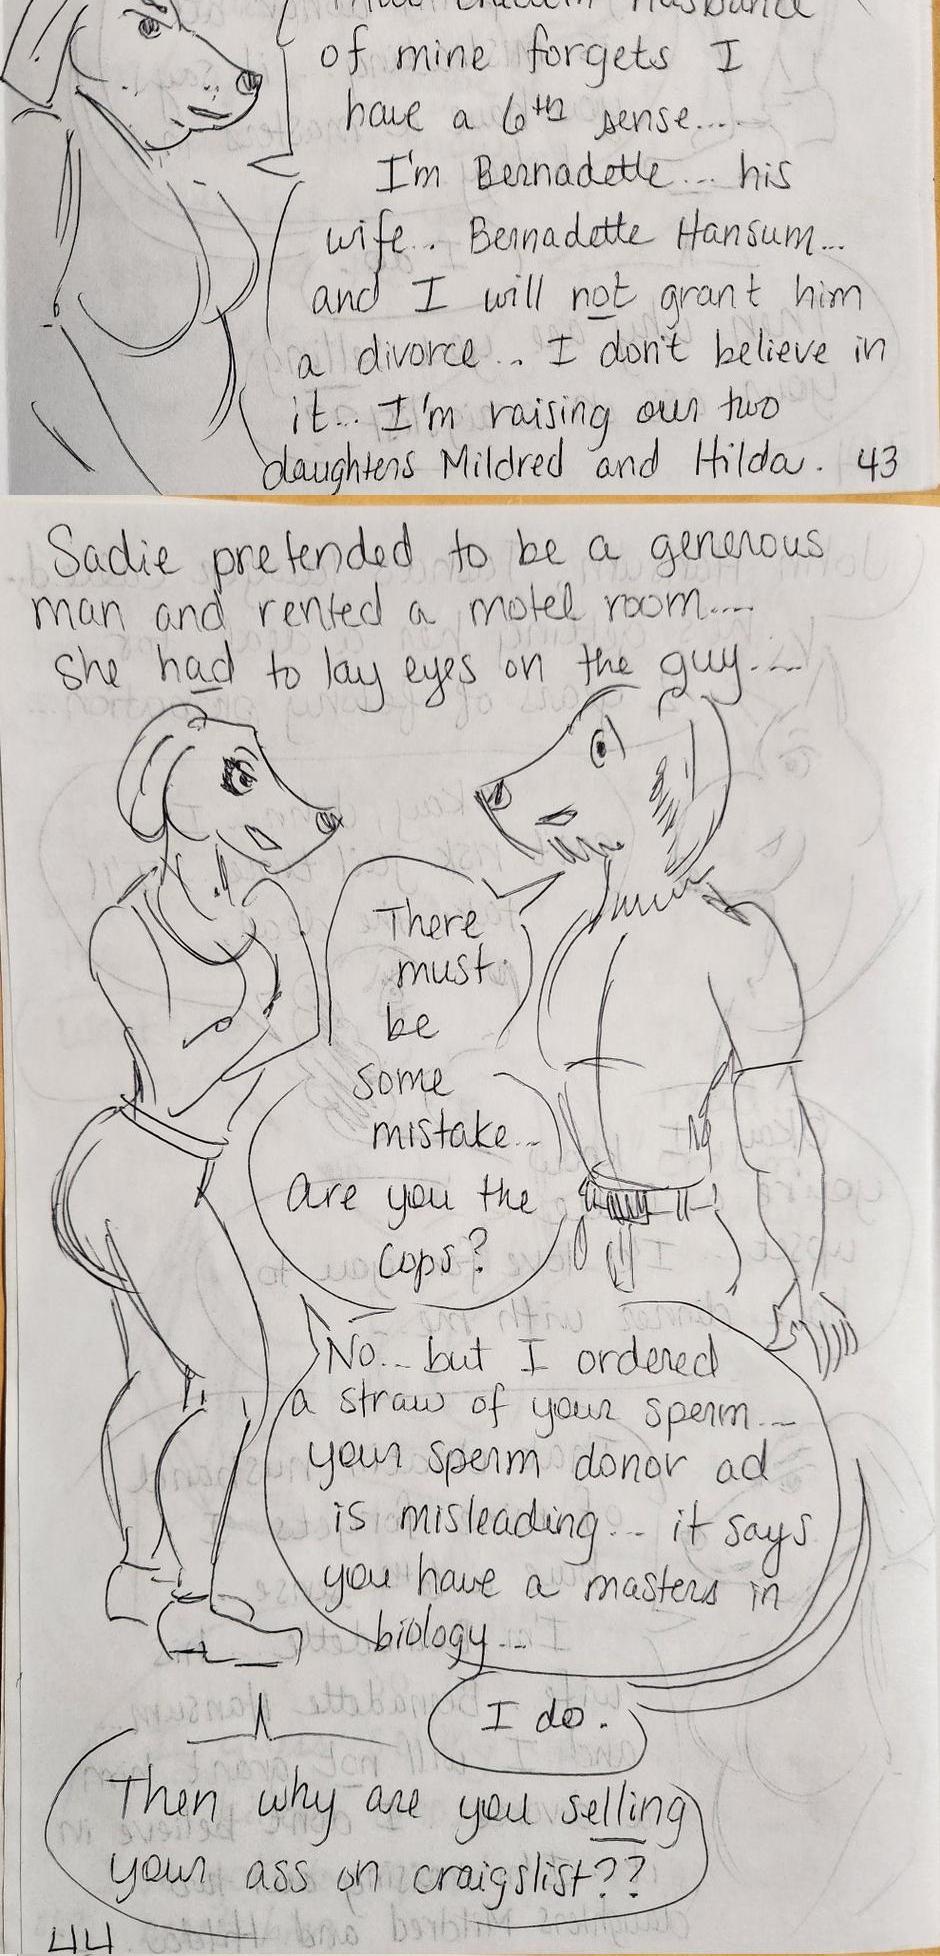 husband
of mine forgets I
have a 6th sense....
I'm Bernadette... his
wife.. Bernadette Hansum...
and I will not grant him
a divorce... I don't believe in
it... I'm raising our two
daughters Mildred and Hilda. 43
Sadie pretended to be a generous
man and rented a motel room....
she had to lay eyes on the guy....
There
must
be
some
mistake...
are you the
cops?
No... but I ordered
a straw of your sperm...
your sperm donor ad
is misleading... it says
you have a masters in
biology...
I do.
Then why are you selling
your ass on craigslist??
44